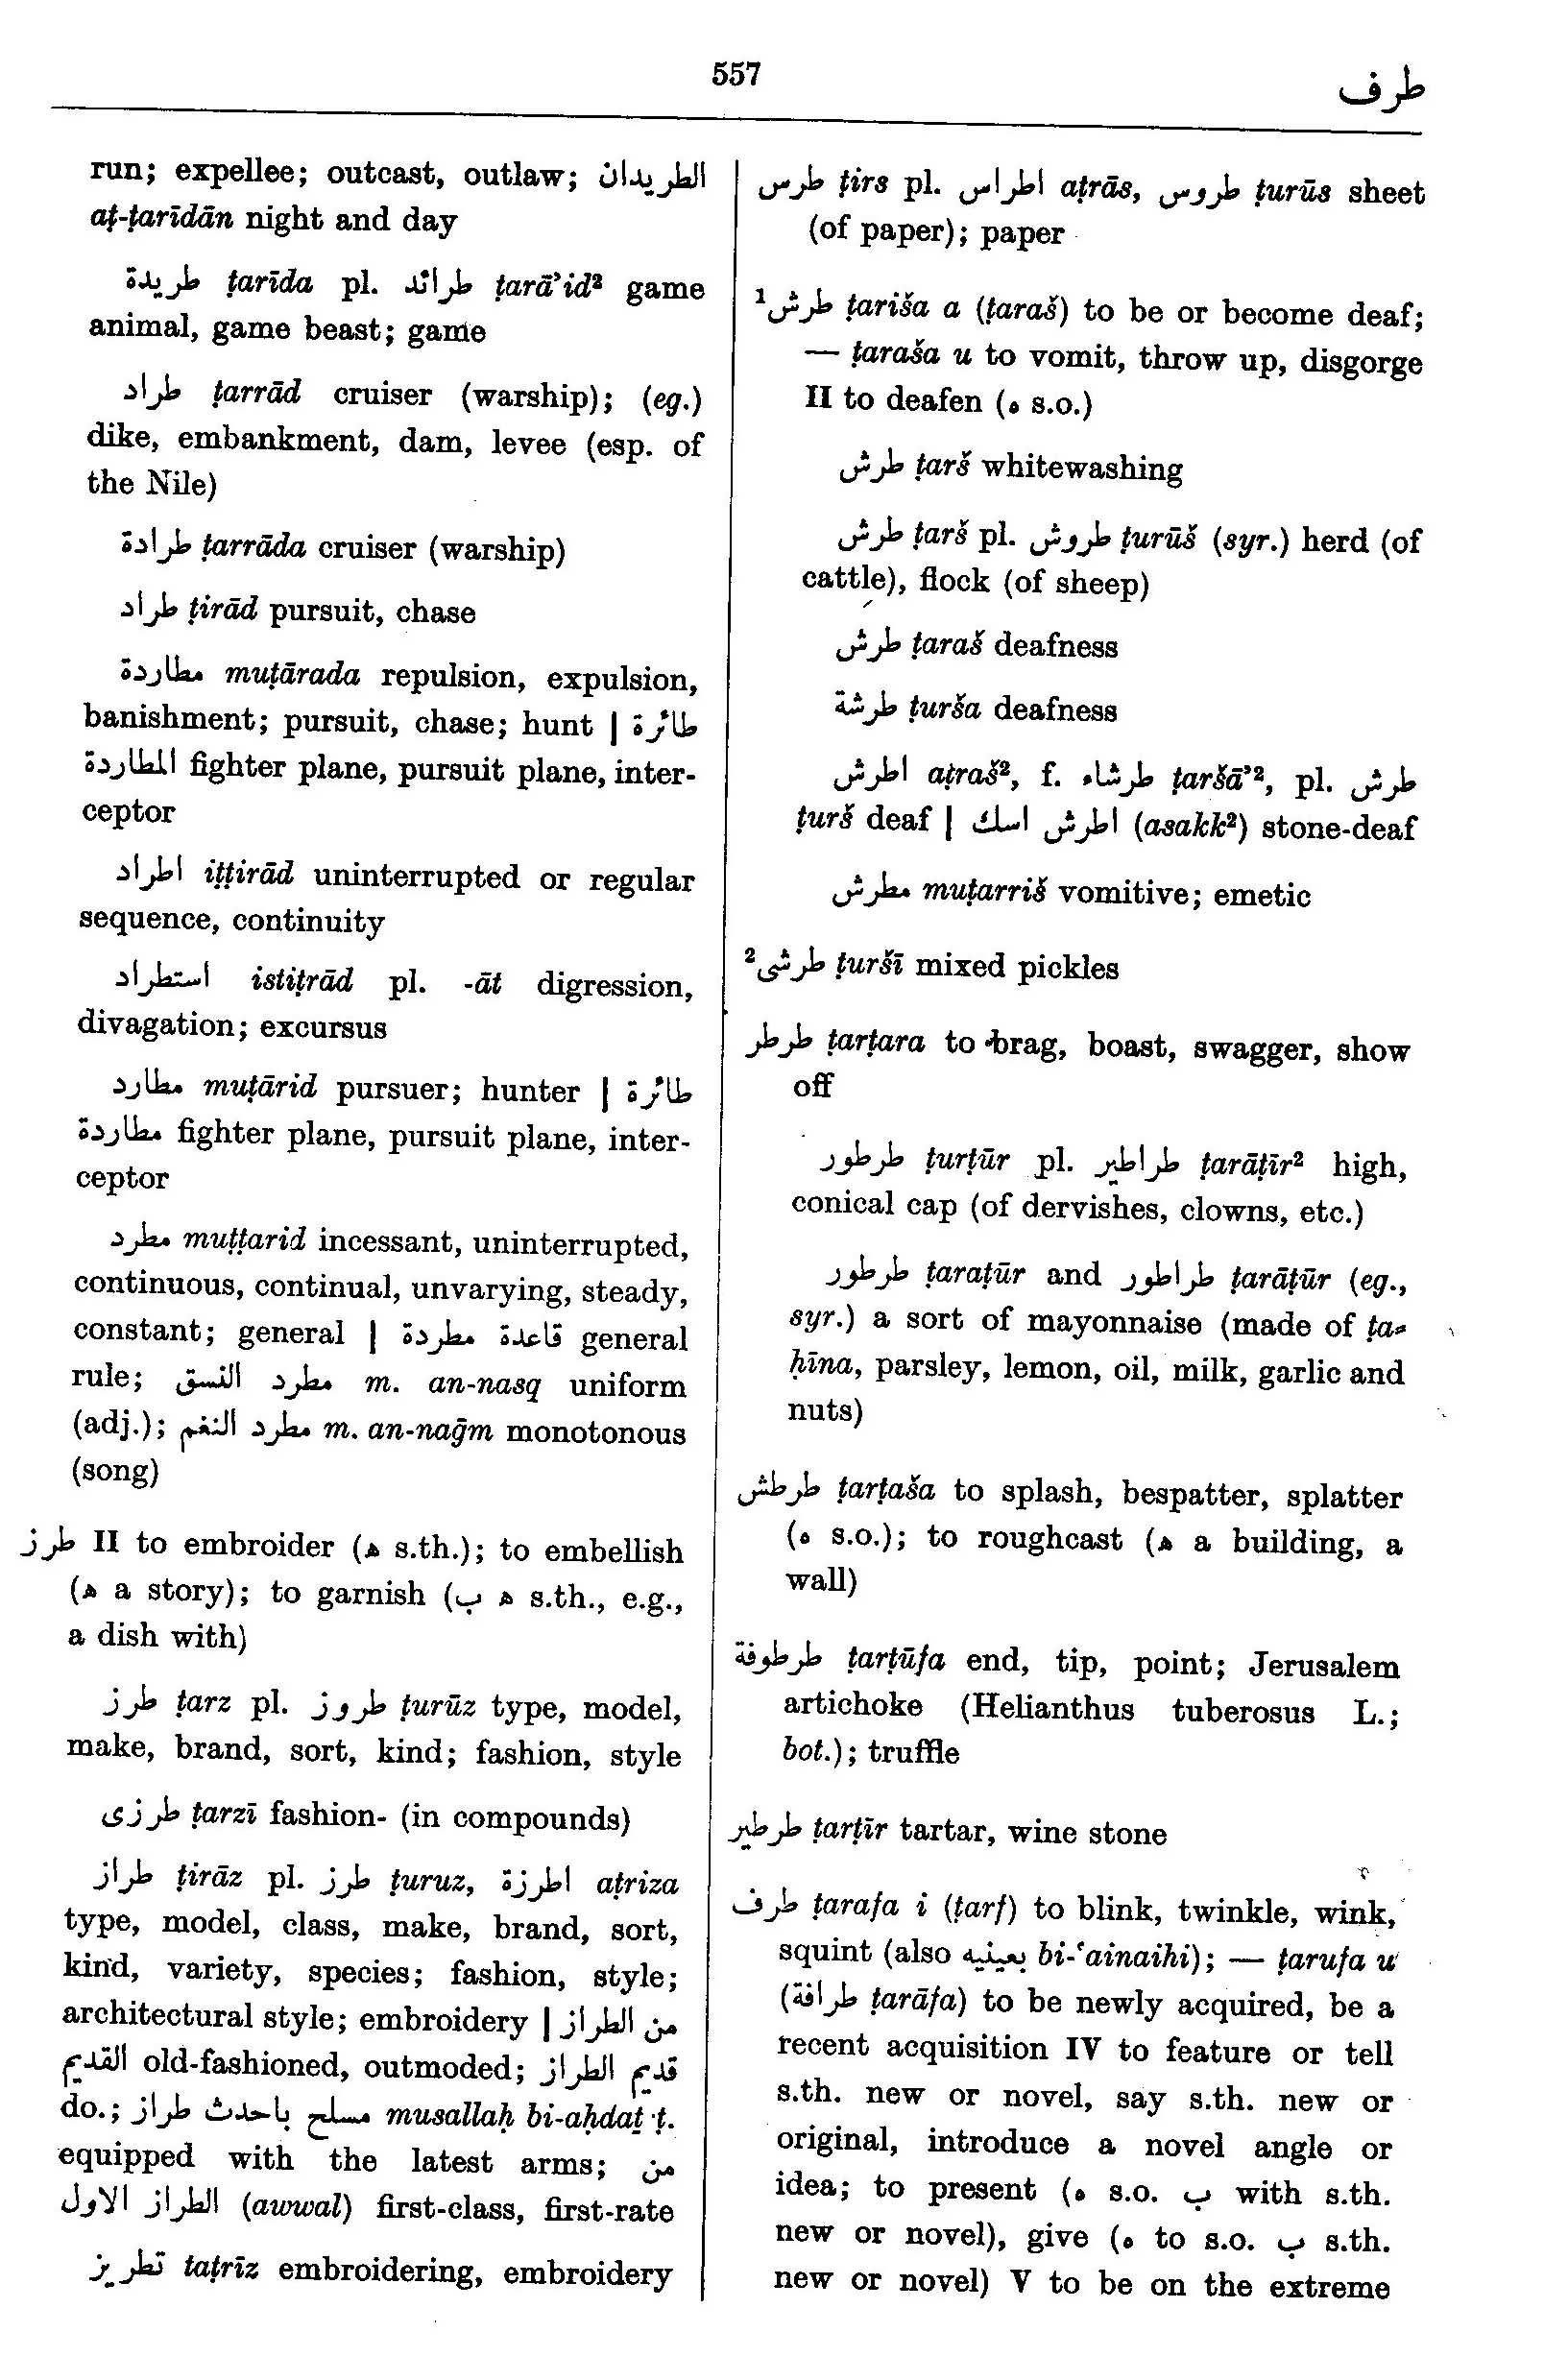 557
طرف
run; expellee; outcast, outlaw; الطريدان
aṭ-ṭarīdān night and day
طريدة ṭarīda pl. طرائد ṭarā'id² game
animal, game beast; game
طراد ṭarrād cruiser (warship); (eg.)
dike, embankment, dam, levee (esp. of
the Nile)
طرادة ṭarrāda cruiser (warship)
طراد ṭirād pursuit, chase
مطاردة muṭārada repulsion, expulsion,
banishment; pursuit, chase; hunt | طائرة
المطاردة fighter plane, pursuit plane, inter-
ceptor
اطراد iṭṭirād uninterrupted or regular
sequence, continuity
استطراد istiṭrād pl. -āt digression,
divagation; excursus
مطارد muṭārid pursuer; hunter | طائرة
مطاردة fighter plane, pursuit plane, inter-
ceptor
مطرد muṭṭarid incessant, uninterrupted,
continuous, continual, unvarying, steady,
constant; general | قاعدة مطردة general
rule; مطرد النسق m. an-nasq uniform
(adj.); مطرد النغم m. an-naḡm monotonous
(song)
طرز II to embroider (ه s.th.); to embellish
(ه a story); to garnish (ه ب s.th., e.g.,
a dish with)
طرز ṭarz pl. طروز ṭurūz type, model,
make, brand, sort, kind; fashion, style
طرزى ṭarzī fashion- (in compounds)
طراز ṭirāz pl. طرز ṭuruz, اطرزة aṭriza
type, model, class, make, brand, sort,
kind, variety, species; fashion, style;
architectural style; embroidery | من الطراز
القديم old-fashioned, outmoded; قديم الطراز
do.; مسلح باحدث طراز musallaḥ bi-aḥdaṯ ṭ.
equipped with the latest arms; من
الطراز الاول (awwal) first-class, first-rate
تطريز taṭrīz embroidering, embroidery
طرس ṭirs pl. اطراس aṭrās, طروس ṭurūs sheet
(of paper); paper
¹طرش ṭariša a (ṭaraš) to be or become deaf;
— ṭaraša u to vomit, throw up, disgorge
II to deafen (ه s.o.)
طرش ṭarš whitewashing
طرش ṭarš pl. طروش ṭurūš (syr.) herd (of
cattle), flock (of sheep)
طرش ṭaraš deafness
طرشة ṭurša deafness
اطرش aṭraš², f. طرشاء ṭaršā'², pl. طرش
ṭurš deaf | اطرش اسك (asakk²) stone-deaf
مطرش muṭarriš vomitive; emetic
²طرشى ṭuršī mixed pickles
طرطر ṭarṭara to brag, boast, swagger, show
off
طرطور ṭurṭūr pl. طراطير ṭarāṭīr² high,
conical cap (of dervishes, clowns, etc.)
طرطور ṭaraṭūr and طراطور ṭarāṭūr (eg.,
syr.) a sort of mayonnaise (made of ṭa-
ḥīna, parsley, lemon, oil, milk, garlic and
nuts)
طرطش ṭarṭaša to splash, bespatter, splatter
(ه s.o.); to roughcast (ه a building, a
wall)
طرطوفة ṭarṭūfa end, tip, point; Jerusalem
artichoke (Helianthus tuberosus L.;
bot.); truffle
طرطير ṭarṭīr tartar, wine stone
طرف ṭarafa i (ṭarf) to blink, twinkle, wink,
squint (also بعينيه bi-'ainaihi); — ṭarufa u
(طرافة ṭarāfa) to be newly acquired, be a
recent acquisition IV to feature or tell
s.th. new or novel, say s.th. new or
original, introduce a novel angle or
idea; to present (ه s.o. ب with s.th.
new or novel), give (ه to s.o. ب s.th.
new or novel) V to be on the extreme